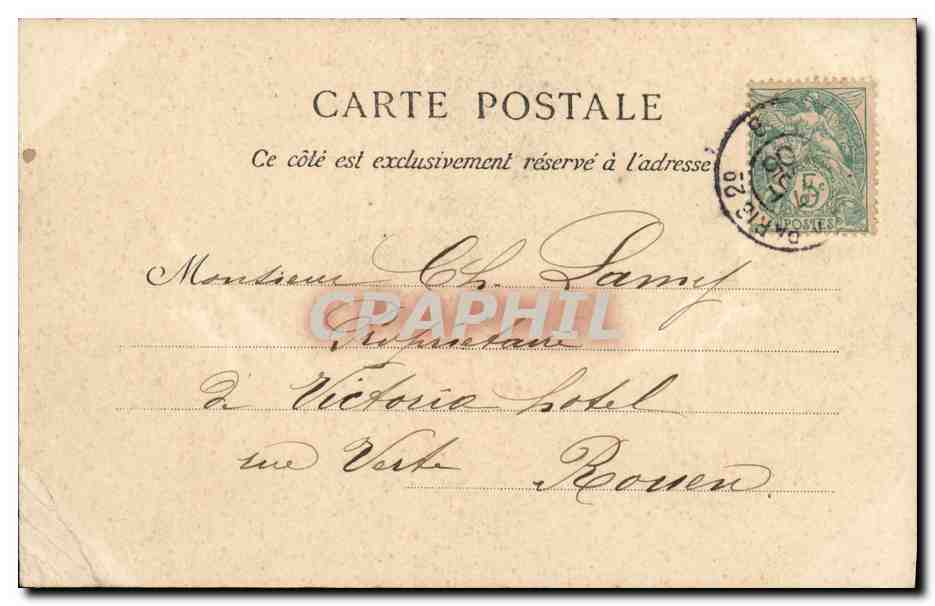 CARTE POSTALE
Ce côté est exclusivement réservé à l'adresse
PARIS 20
5c
POSTES
Monsieur Ch. Lamy
CPARHIL
Propriétaire
de Victoria hotel
rue Verte Rouen.